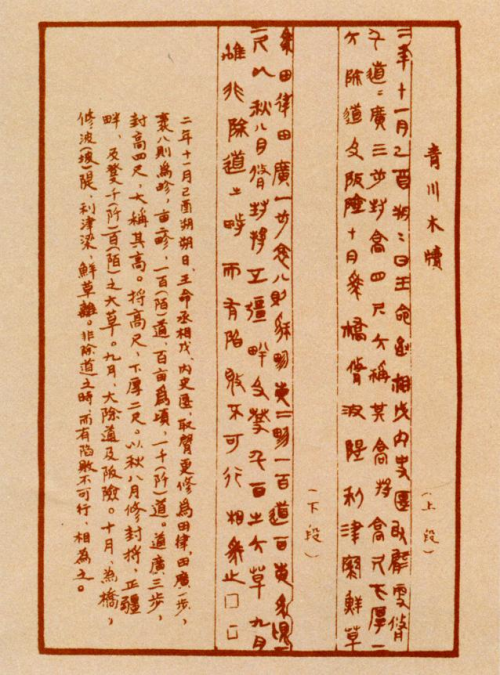 青川木牘
(上段)
二年十一月己酉朔=日王命丞相戊内史匽取臂更脩
千道=廣三步封高四尺大稱其高捋高尺下厚二
大除道及阪險十月爲橋脩波隄利津梁鮮草
(下段)
爲田律田廣一步袤八則爲畛畝二畛一百道百畝爲頃一
尺以秋八月脩封捋正彊畔及癹千百之大草九月
雖非除道之時而有陷敗不可行相爲之□□
二年十一月己酉朔朔日、王命丞相戊、内史匽、取臂更修爲田律、田廣一步、
袤八則爲畛、亩二畛、一百(陌)道、百亩爲頃、一千(阡)道。道廣三步、
封高四尺、大稱其高。捋高尺、下厚二尺。以秋八月修封捋、正疆
畔、及癹千(阡)百(陌)之大草。九月、大除道及阪險。十月、爲橋、
修波(坡)隄、利津梁、鮮草離。非除道之時、而有陷敗不可行、相爲之。